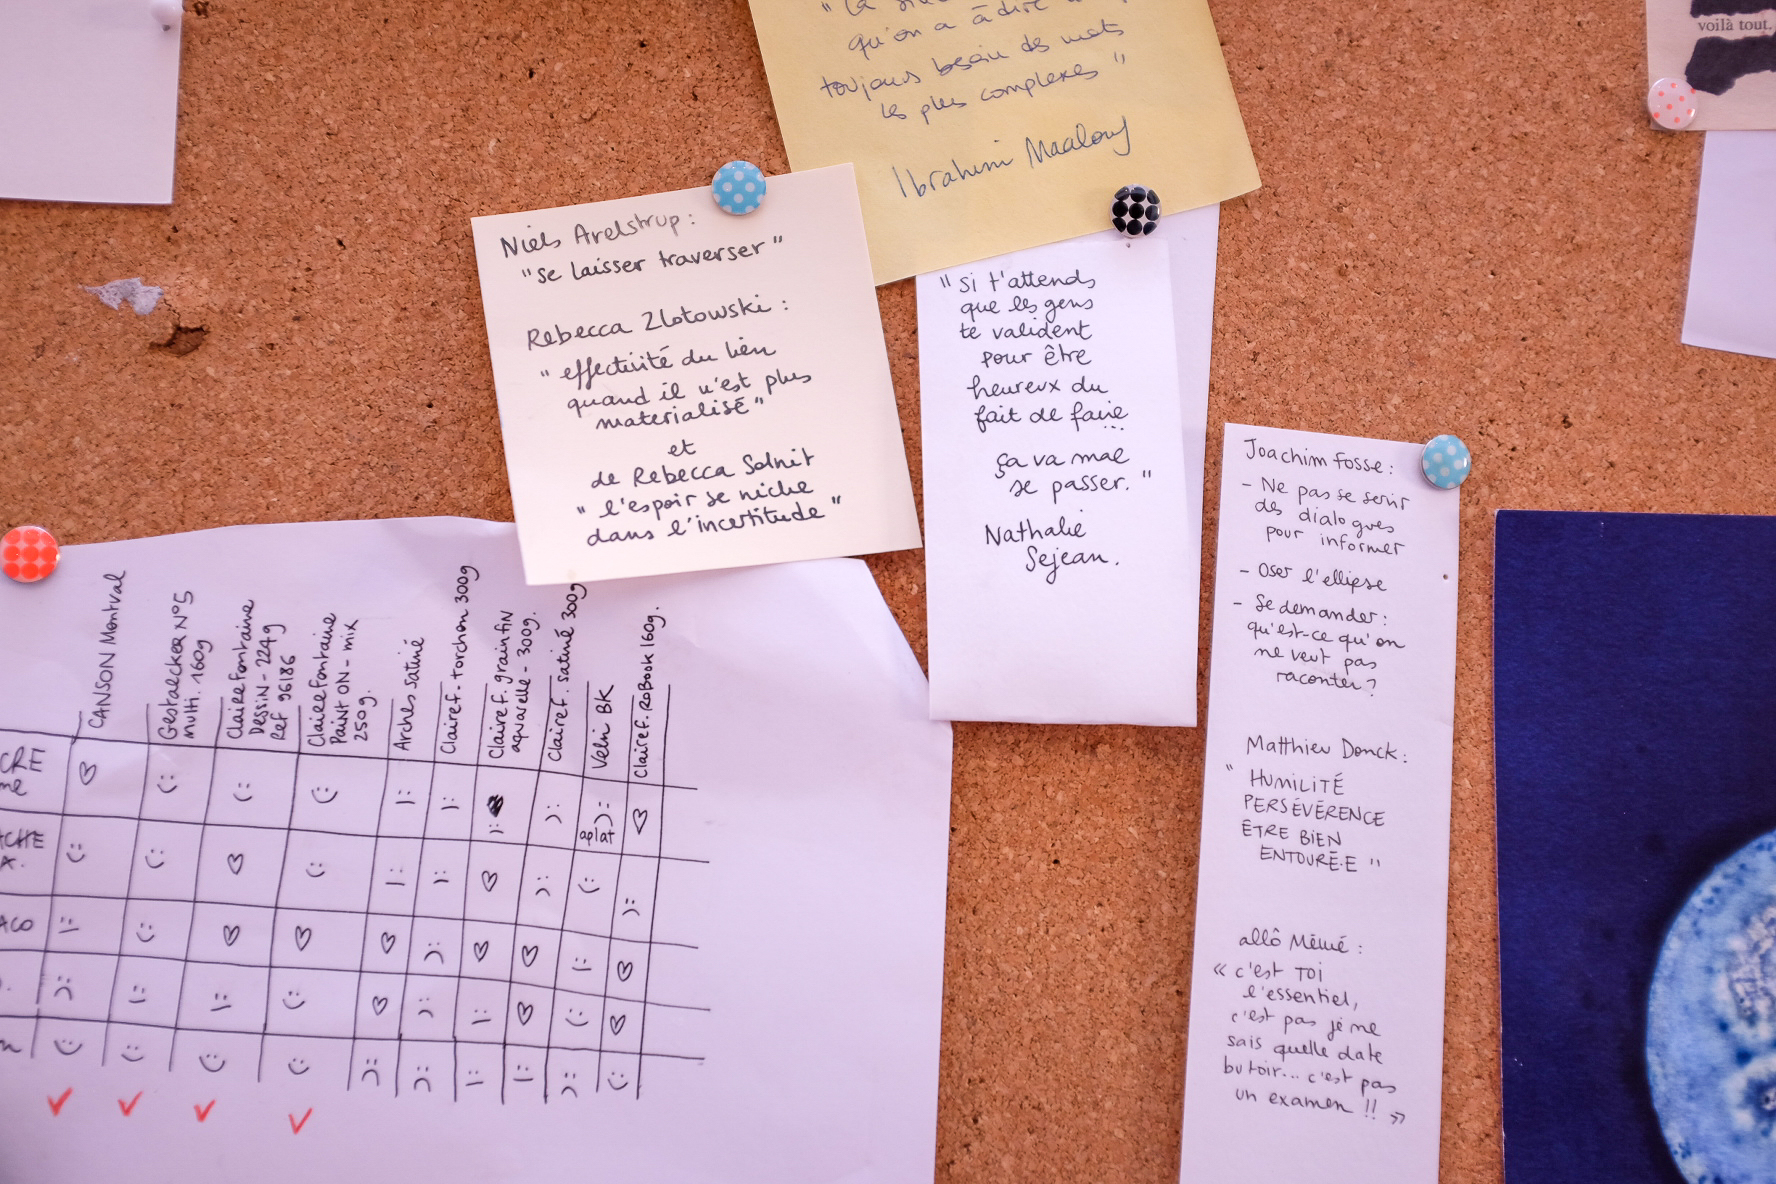 qu'on a à dire
toujours besoin des mots
les plus complexes "
Ibrahim Maalouf
voilà tout.
Niels Arelstrup :
"se laisser traverser"
Rebecca Zlotowski :
" effectivité du lien
quand il n'est plus
materialisé "
et
de Rebecca Solnit
" l'espoir se niche
dans l'incertitude "
" si t'attends
que les gens
te valident
pour être
heureux du
fait de faire
...
ça va mal
se passer. "
Nathalie
Sejean.
Joachim Fosse :
- Ne pas se servir
des dialogues
pour informer
- Oser l'ellipse
- Se demander :
qu'est-ce qu'on
ne veut pas
raconter ?
Matthieu Donck :
" HUMILITÉ
PERSÉVÉRENCE
ÊTRE BIEN
ENTOURÉ·E "
allô Mémé :
« c'est TOI
l'essentiel,
c'est pas je ne
sais quelle date
butoir... c'est pas
un examen !! »
CANSON Montval
Gestaecker N°5
multi. 160g
Clairefontaine
Dessin - 224g
Ref 96186
Clairefontaine
Paint'ON - mix
250g.
Arches satiné
Clairef. torchon 300g
Clairef. grain fin
aquarelle - 300g.
Clairef. satiné 300g
Velin BK
Clairef. RoBook 160g.
CRE
me
♡ :) :) :) :| :| :| :( :( ♡
aplat
CHE
A.
:) :) ♡ :) :| :| ♡ :( :) :(
ACO
:| :) ♡ ♡ ♡ :( ♡ ♡ :| ♡
:( :| :| :) ♡ :( :| ♡ :) ♡
n
:) :) :) :) :( :( :| :| :( :)
✓ ✓ ✓ ✓